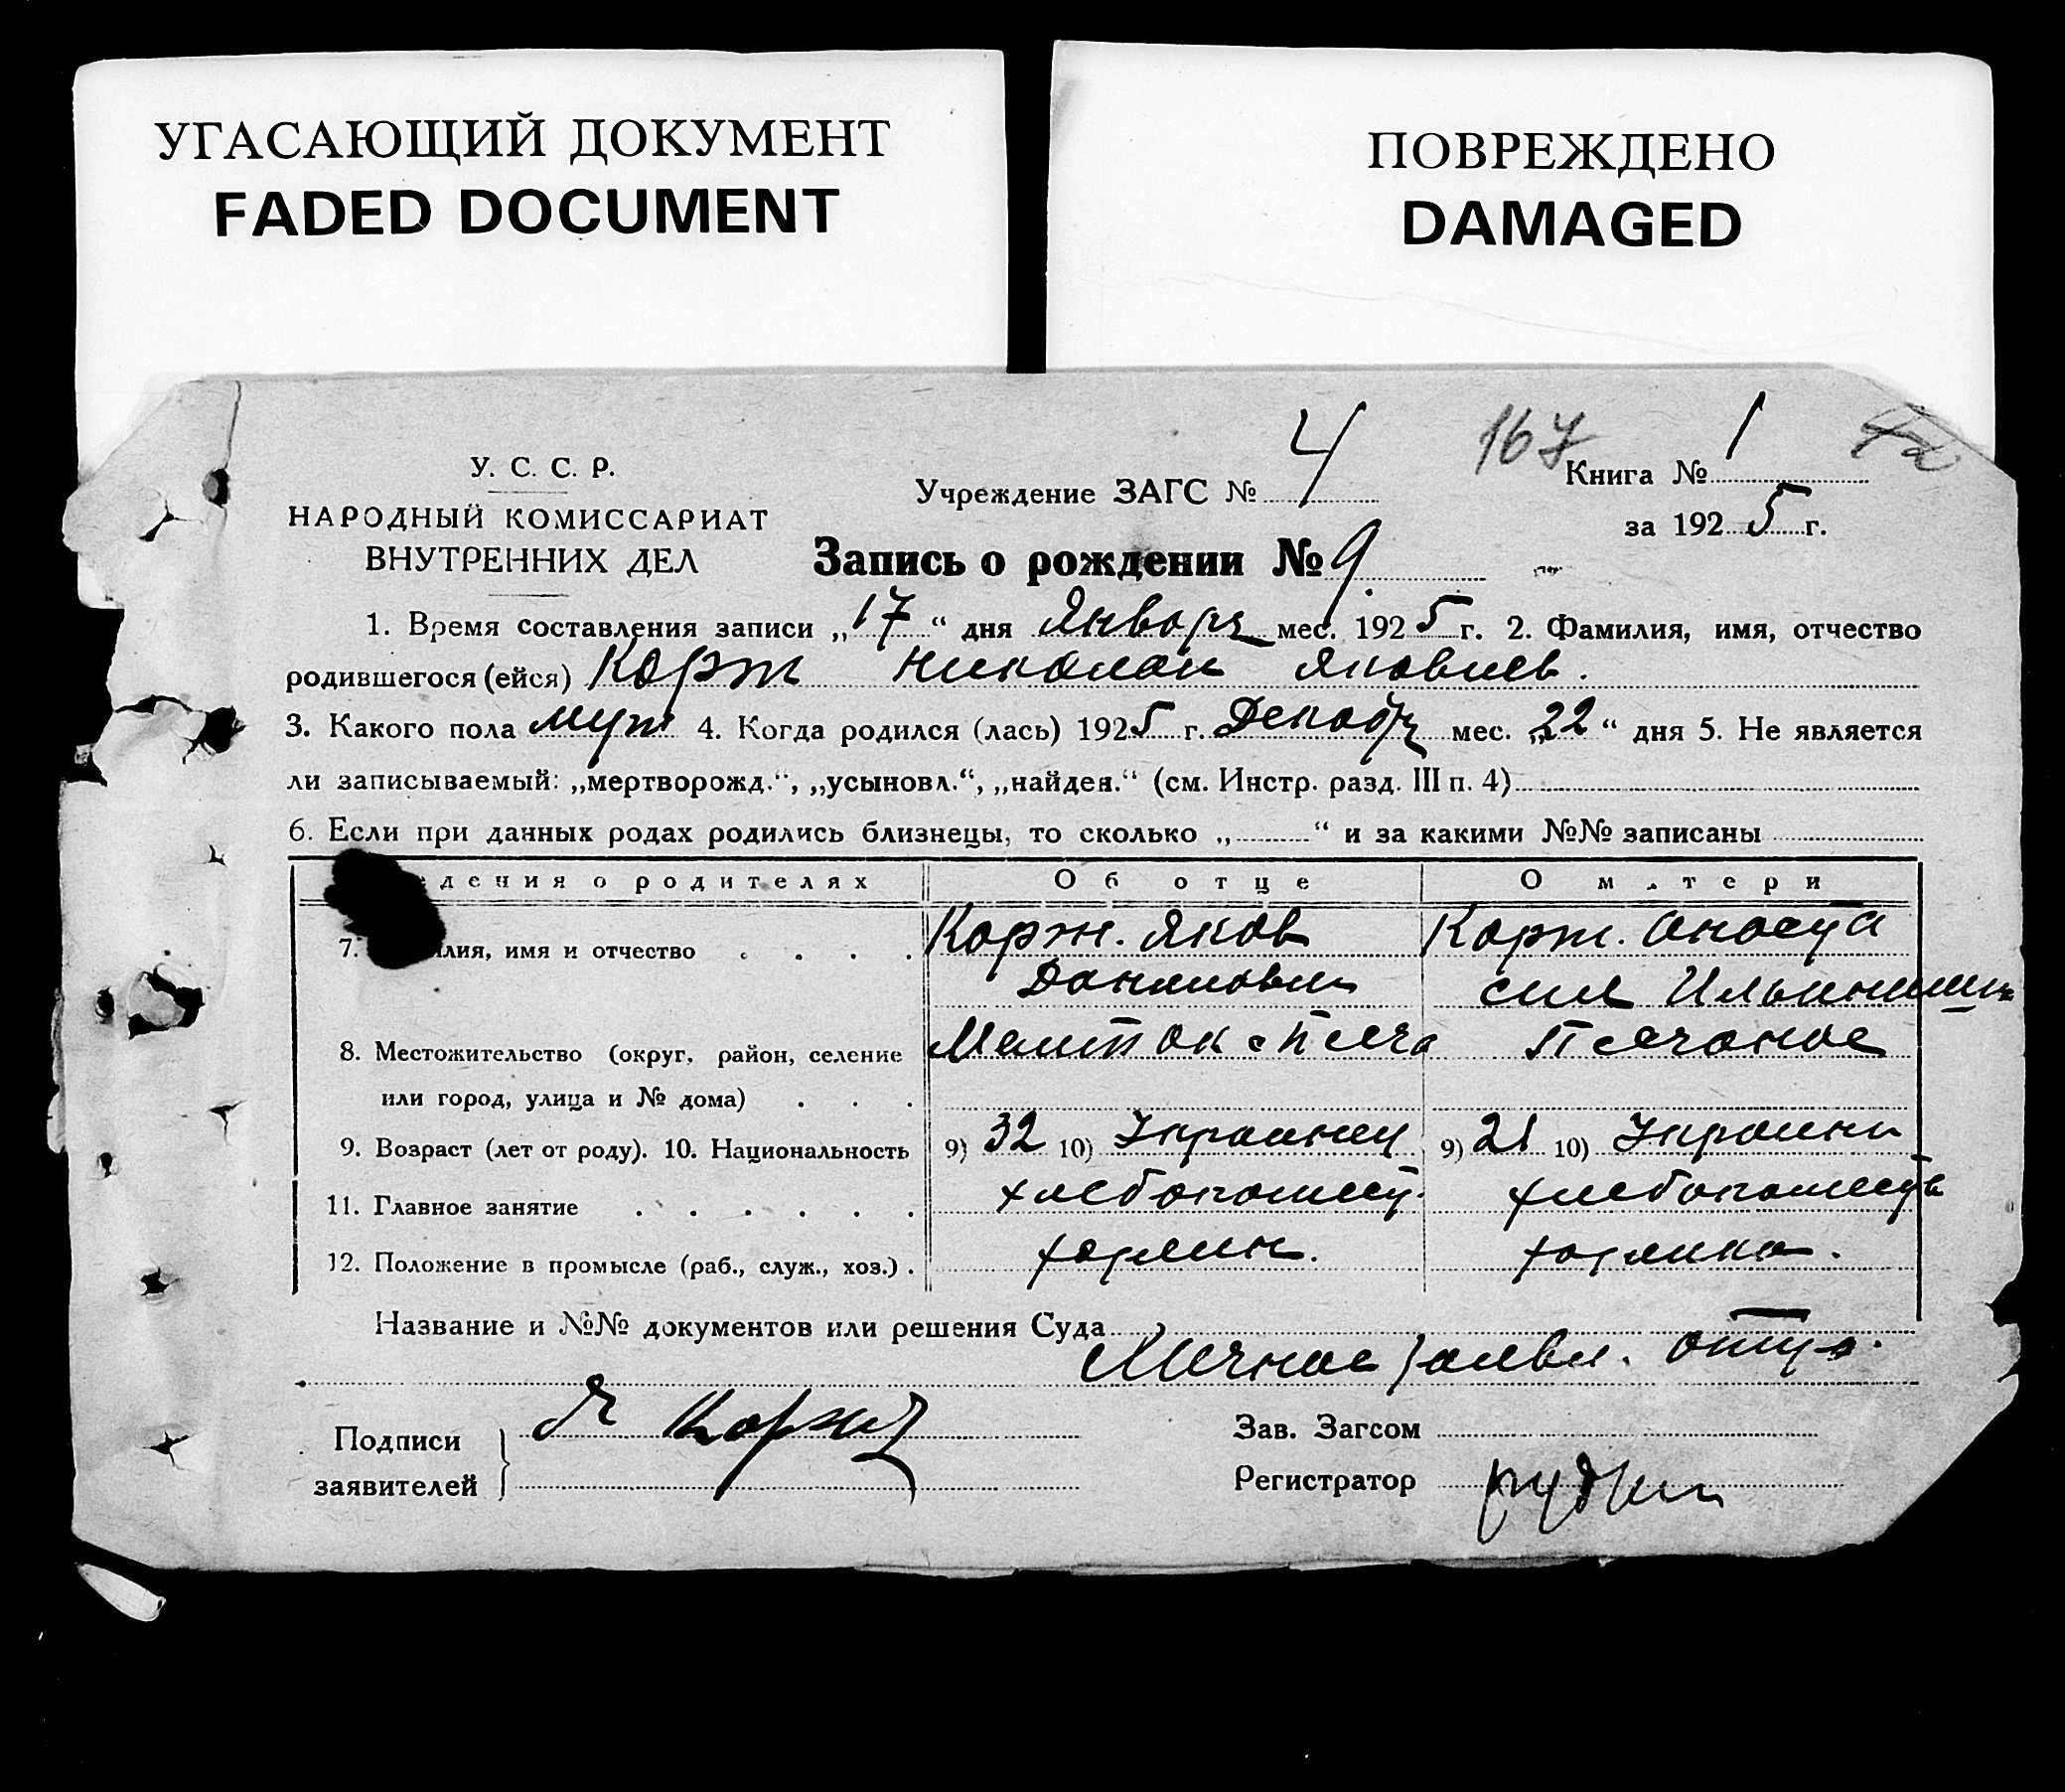 УГАСАЮЩИЙ ДОКУМЕНТ
FADED DOCUMENT
ПОВРЕЖДЕНО
DAMAGED
167
У. С. С. Р.
НАРОДНЫЙ КОМИССАРИАТ
ВНУТРЕННИХ ДЕЛ
Учреждение ЗАГС № 4
Книга № 1
за 1925 г.
Запись о рождении № 9
1. Время составления записи „17“ дня Января мес. 1925 г. 2. Фамилия, имя, отчество
родившегося (ейся) Корж Николай Яковлев.
3. Какого пола муж 4. Когда родился (лась) 1925 г. Декабря мес. „22“ дня 5. Не является
ли записываемый: „мертворожд.“, „усыновл.“, „найден.“ (см. Инстр. разд. III п. 4)
6. Если при данных родах родились близнецы, то сколько „ “ и за какими №№ записаны
дения о родителях Об отце О м.тери
7. илия, имя и отчество Корж. Яков Корж.
Данилович
8. Местожительство (округ, район, селение Песчаное
или город, улица и № дома)
9. Возраст (лет от роду). 10. Национальность 9) 32 10) Украинец 9) 21 10) Украинк
11. Главное занятие хлебопашец хлебопашец
12. Положение в промысле (раб., служ., хоз.) хозяин. хозяйка.
Название и №№ документов или решения Суда
Личное заявл. отца.
Подписи заявителей Я Корж
Зав. Загсом
Регистратор